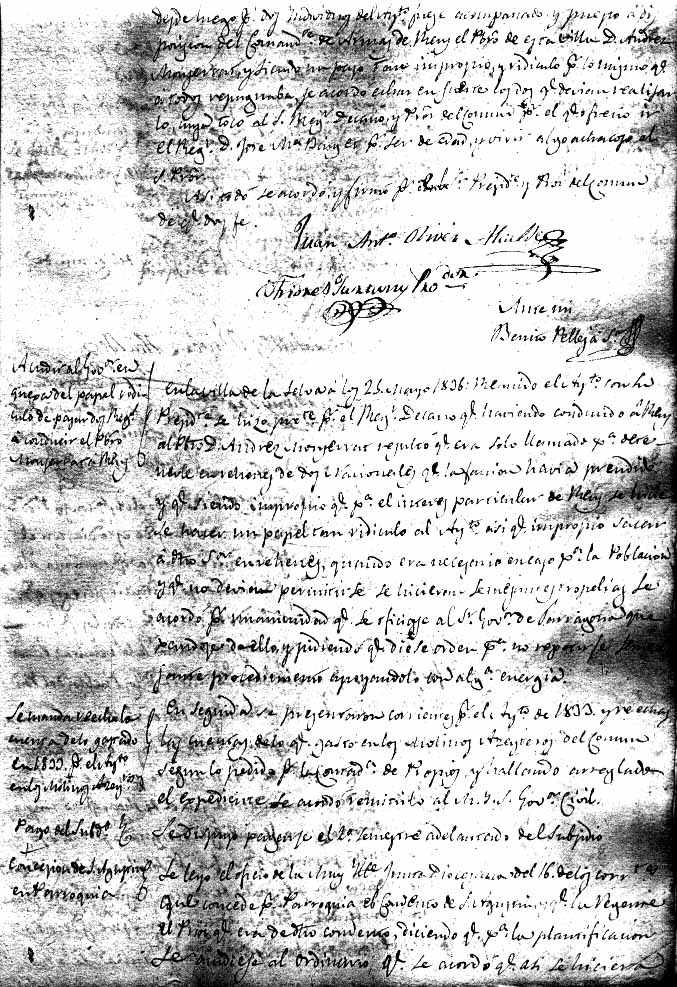 desde luego pr. dos Individuos del Aytto. fuese acompañado y puesto á dis
posicion del Comandte. de Armas de Reus el Pbro. de esta Villa D. Andres
Monserrat, y siendo un paso tan improprio, y ridiculo pr. lo mismo qe.
á todos repugnaba, se acordo echar en suerte los dos qe. devian realisar
lo, cuya tocó al S. Regr. Decano, y Pror. del Comun pr. el qe. ofrecio ir
el Regr. D. José Ma. Puig er pr. ser de edad, y vivir algo achacoso el
S. Pror.
Asi todo se acordó, y firmó pr. Presidte. y Pror. del Comun
de qe. doy fe.
Juan Anto. Oliver Alcalde
Ante mi
Benito Pellejà So.
Acudir al Govor. en
quexa del papel ridi
culo de pasar dos Regs.
á conducir el Pbro.
Monserrat a Reus
En la villa de la Selva á los 25 Mayo 1836: Reunido el Aytto. con la
Presidte. se hizo prete. pr. el Regr. Decano qe. haviendo conducido á Reus
al Pbro. D. Andres Monserrat resultó qe. era solo llamado pa. dete
nerle en rehenes de dos Nacionales qe. la faccion havia prendido
y qe. siendo improprio qe. pa. el interes particular de Reus se hiciese
hacer un papel tan ridiculo al Aytto. asi qe. improprio sacar
á dho Sor. en rehenes, quando era necesario en caso pa. la Poblacion
y qe. no devian permitirse se hicieran semejantes tropelias Se
acordó pr. unanimidad qe. se oficiase al Sr. Govor. de Tarragona que
xandose de ello, y pidiendo qe. diese orden pa. no repetirse seme
jante procedimiento apoyandolo con alga. energia.
Se manda vecha la
cuenta de lo gastado
en 1833. pr. el Aytto.
en los Molinos Azeyteros
En seguida se presentaron corrientes pr. el Aytto. de 1833. y
las cuentas de lo qe. gastó en los Molinos Azeyteros del Comun
segun lo pedido pr. la Contada. de Propios, y hallando arreglado
el expediente se acordó remitirlo al M. Y. S. Govor. Civil.
Pago del Subdo.
Se dispuso pagarse el 2o. semestre adelantado del Subsidio
Concesion de S. Agustin
en Parroquia
Se leyo el oficio de la Muy Ille. Junta Diocesana del 16. de los corrtes.
qe. concede pr. Parroquia el Convento de S. Agustin, y qe. la Regente
el Prior qe. era de dho convento, diciendo qe. pa. la plantificacion
se acudiese al ordinario, qe. se acordó qe. asi se hiciera